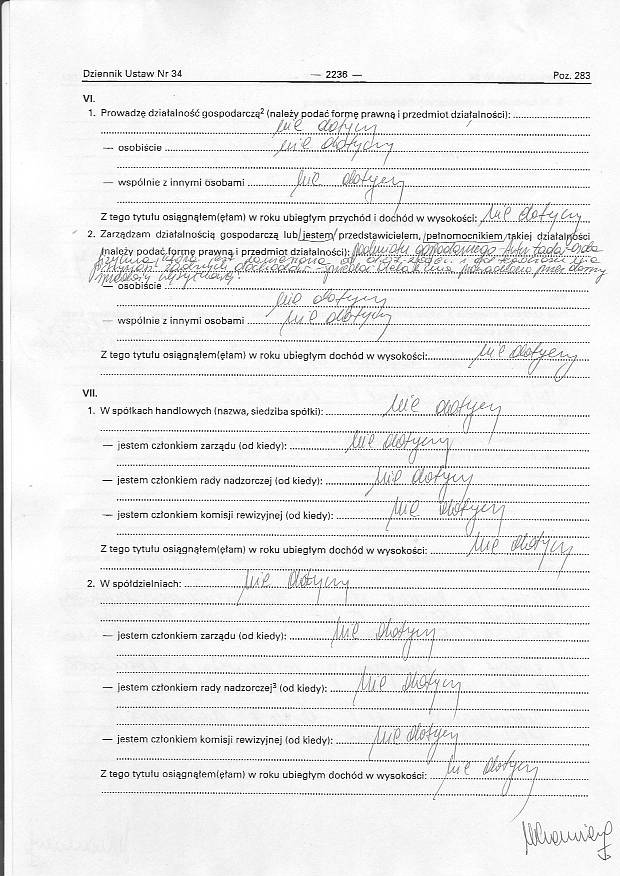 Dziennik Ustaw Nr 34 — 2236 — Poz. 283
VI.
1. Prowadzę działalność gospodarczą² (należy podać formę prawną i przedmiot działalności):
nie dotyczy
— osobiście nie dotyczy
— wspólnie z innymi osobami nie dotyczy
Z tego tytułu osiągnąłem(ęłam) w roku ubiegłym przychód i dochód w wysokości: nie dotyczy
2. Zarządzam działalnością gospodarczą lub jestem przedstawicielem, pełnomocnikiem takiej działalności
(należy podać formę prawną i przedmiot działalności):
— osobiście
nie dotyczy
— wspólnie z innymi osobami nie dotyczy
Z tego tytułu osiągnąłem(ęłam) w roku ubiegłym dochód w wysokości: nie dotyczy
VII.
1. W spółkach handlowych (nazwa, siedziba spółki): nie dotyczy
— jestem członkiem zarządu (od kiedy): nie dotyczy
— jestem członkiem rady nadzorczej (od kiedy): nie dotyczy
— jestem członkiem komisji rewizyjnej (od kiedy): nie dotyczy
Z tego tytułu osiągnąłem(ęłam) w roku ubiegłym dochód w wysokości: nie dotyczy
2. W spółdzielniach: nie dotyczy
— jestem członkiem zarządu (od kiedy): nie dotyczy
— jestem członkiem rady nadzorczej³ (od kiedy): nie dotyczy
— jestem członkiem komisji rewizyjnej (od kiedy): nie dotyczy
Z tego tytułu osiągnąłem(ęłam) w roku ubiegłym dochód w wysokości: nie dotyczy